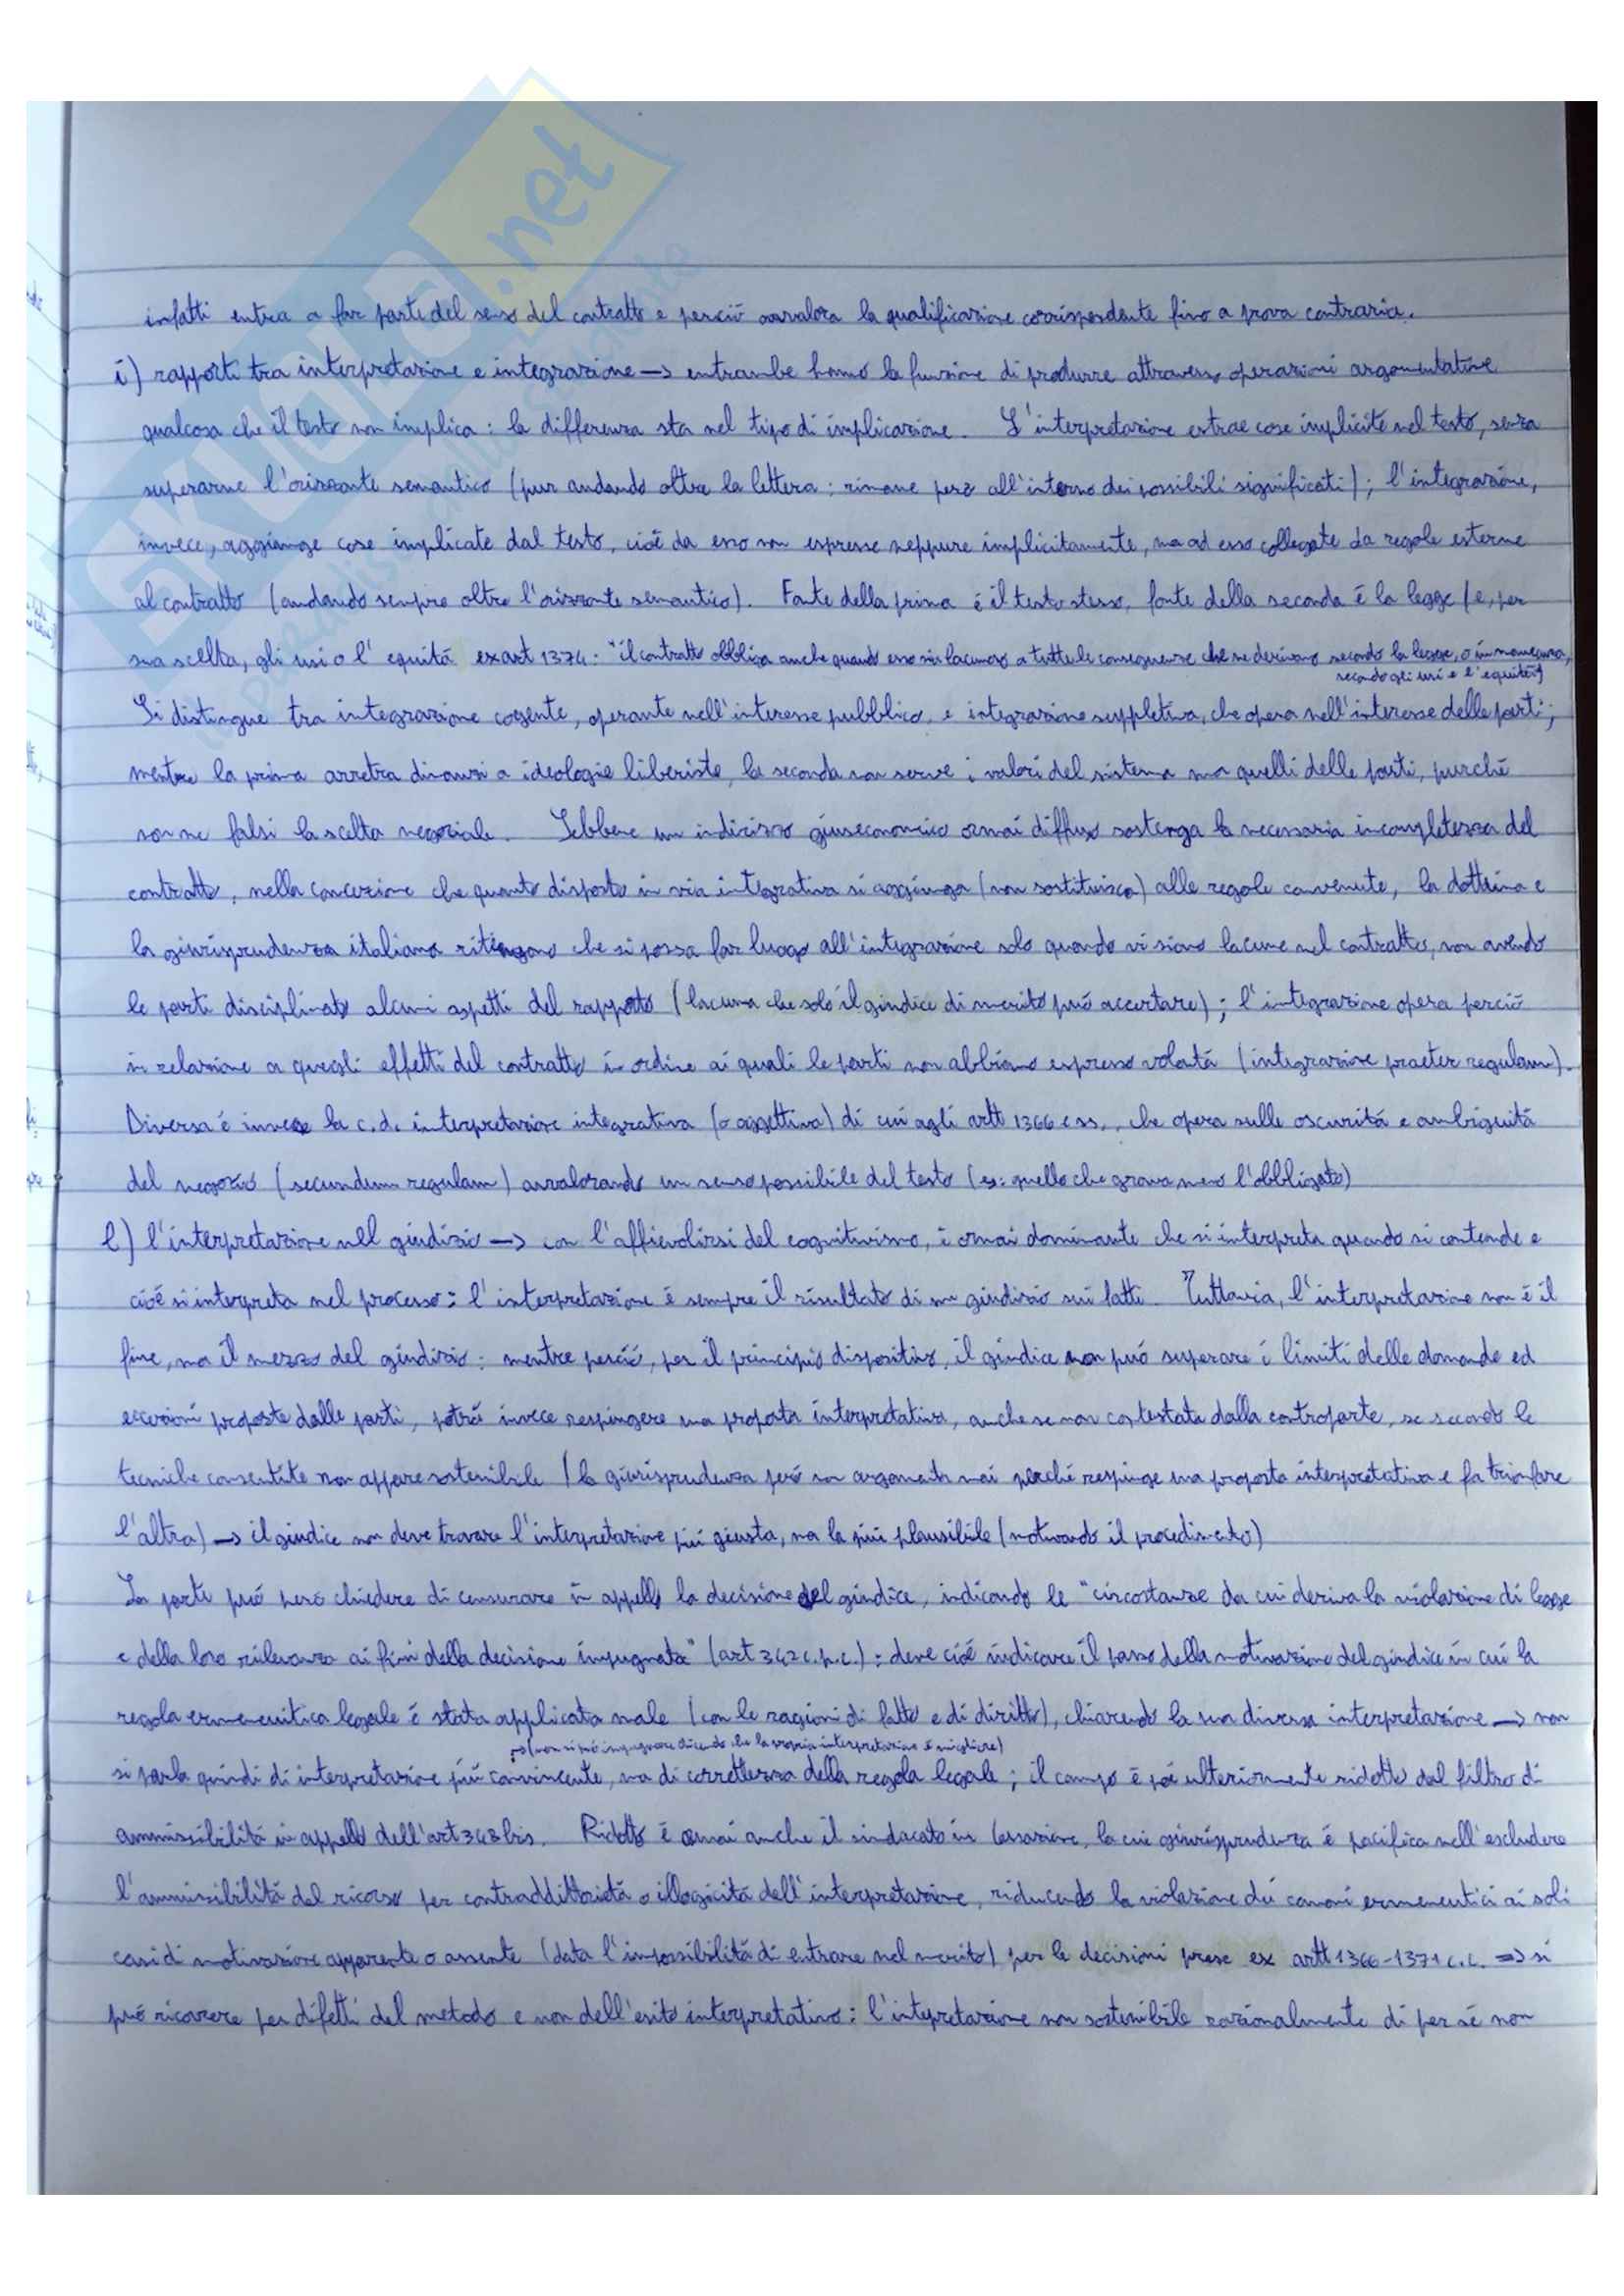 infatti entra a far parte del senso del contratto e perciò avvalora la qualificazione corrispondente fino a prova contraria.
i) rapporti tra interpretazione e integrazione → entrambe hanno la funzione di produrre attraverso operazioni argomentative
qualcosa che il testo non implica: la differenza sta nel tipo di implicazione. L'interpretazione estrae cose implicite nel testo, senza
superarne l'orizzonte semantico (pur andando oltre la lettera: rimane però all'interno dei possibili significati); l'integrazione,
invece, aggiunge cose implicate dal testo, cioè da esso non espresse neppure implicitamente, ma ad esso collegate da regole esterne
al contratto (andando sempre oltre l'orizzonte semantico). Fonte della prima è il testo stesso, fonte della seconda è la legge (e, per
sua scelta, gli usi o l'equità ex art 1374: "il contratto obbliga anche quando esso sia lacunoso a tutte le conseguenze che ne derivano secondo la legge, o in mancanza,
secondo gli usi e l'equità")
Si distingue tra integrazione cogente, operante nell'interesse pubblico, e integrazione suppletiva, che opera nell'interesse delle parti;
mentre la prima arretra dinanzi a ideologie liberiste, la seconda non serve i valori del sistema ma quelli delle parti, purché
non ne falsi la scelta negoziale. Sebbene un indirizzo giuseconomico ormai diffuso sostenga la necessaria incompletezza del
contratto, nella concezione che quanto disposto in via integrativa si aggiunga (non sostituisca) alle regole convenute, la dottrina e
la giurisprudenza italiana ritengono che si possa far luogo all'integrazione solo quando vi siano lacune nel contratto, non avendo
le parti disciplinato alcuni aspetti del rapporto (lacuna che solo il giudice di merito può accertare); l'integrazione opera perciò
in relazione a quegli effetti del contratto in ordine ai quali le parti non abbiano espresso volontà (integrazione praeter regulam).
Diversa è invece la c.d. interpretazione integrativa (o oggettiva) di cui agli artt 1366 e ss., che opera sulle oscurità e ambiguità
del negozio (secundum regulam) avvalorando un senso possibile del testo (es: quello che grava meno l'obbligato)
l) l'interpretazione nel giudizio → con l'affievolirsi del cognitivismo, è ormai dominante che si interpreta quando si contende e
cioè si interpreta nel processo: l'interpretazione è sempre il risultato di un giudizio sui fatti. Tuttavia, l'interpretazione non è il
fine, ma il mezzo del giudizio: mentre perciò, per il principio dispositivo, il giudice non può superare i limiti delle domande ed
eccezioni proposte dalle parti, potrà invece respingere una proposta interpretativa, anche se non contestata dalla controparte, se secondo le
tecniche consentite non appare sostenibile (la giurisprudenza però non argomenta mai perché respinge una proposta interpretativa e fa trionfare
l'altra) → il giudice non deve trovare l'interpretazione più giusta, ma la più plausibile (motivando il procedimento)
La parte può però chiedere di censurare in appello la decisione del giudice, indicando le "circostanze da cui deriva la violazione di legge
e della loro rilevanza ai fini della decisione impugnata" (art 342 c.p.c.): deve cioè indicare il passo della motivazione del giudice in cui la
regola ermeneuitica legale è stata applicata male (con le ragioni di fatto e di diritto), chiarendo la sua diversa interpretazione → non
→ (non si può impugnare dicendo che la propria interpretazione è migliore)
si parla quindi di interpretazione più convincente, ma di correttezza della regola legale; il campo è poi ulteriormente ridotto dal filtro di
ammissibilità in appello dell'art 348 bis. Ridotto è ormai anche il sindacato in Cassazione, la cui giurisprudenza è pacifica nell'escludere
l'ammissibilità del ricorso per contraddittorietà o illogicità dell'interpretazione, riducendo la violazione dei canoni ermeneutici ai soli
casi di motivazione apparente o assente (data l'impossibilità di entrare nel merito) per le decisioni prese ex artt 1366-1371 c.c. ⇒ si
può ricorrere per difetti del metodo e non dell'esito interpretativo: l'intepretazione non sostenibile razionalmente di per sé non